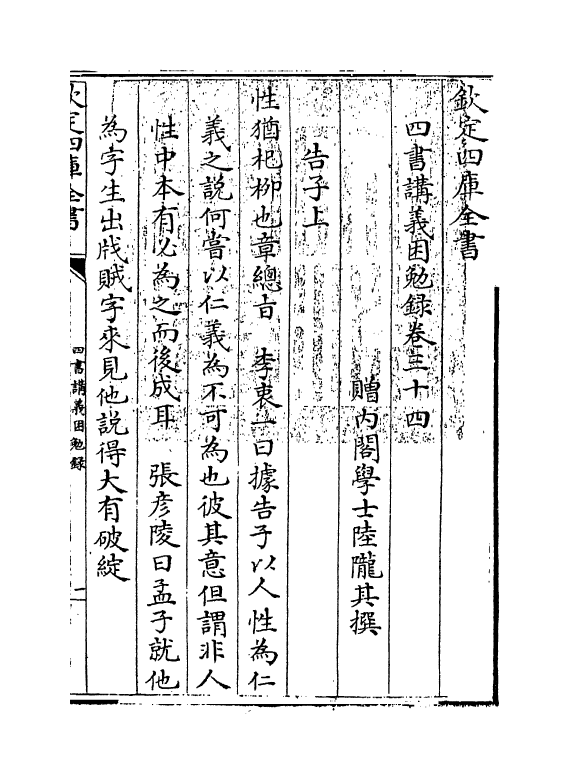 欽定四庫全書
四書講義困勉録卷三十四
贈内閣學士陸隴其撰
告子上
性猶杞柳也章總㫖　李衷一曰據告子以人性為仁
義之說何嘗以仁義為不可為也彼其意但謂非人
性中本有必為之而後成耳　張彦陵曰孟子就他
為字生出戕賊字來見他說得大有破綻
欽定四庫全書
四書講義困勉録
一